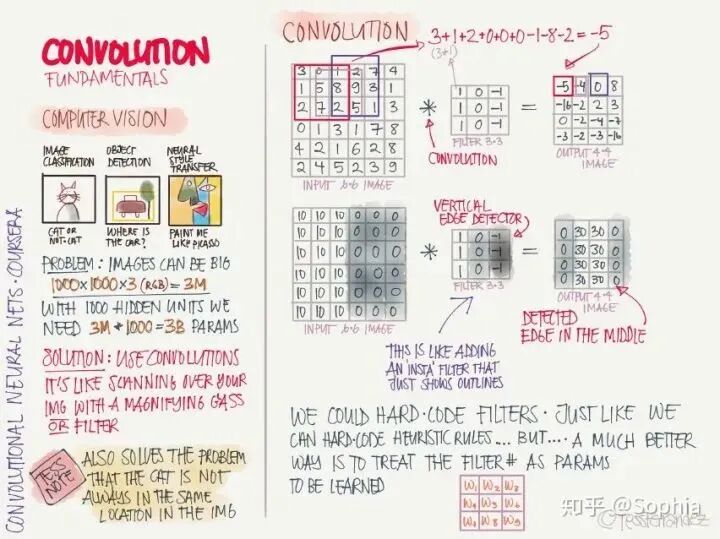 CONVOLUTIONAL NEURAL NETS · COURSERA
CONVOLUTION
FUNDAMENTALS
COMPUTER VISION
IMAGE CLASSIFICATION
OBJECT DETECTION
NEURAL STYLE TRANSFER
CAT OR NOT-CAT
WHERE IS THE CAR?
PAINT ME LIKE PICASSO
PROBLEM: IMAGES CAN BE BIG
1000×1000×3 (RGB) = 3M
WITH 1000 HIDDEN UNITS WE
NEED 3M * 1000 = 3B PARAMS
SOLUTION: USE CONVOLUTIONS
IT'S LIKE SCANNING OVER YOUR
IMG WITH A MAGNIFYING GASS
OR FILTER
TESS NOTE
ALSO SOLVES THE PROBLEM
THAT THE CAT IS NOT
ALWAYS IN THE SAME
LOCATION IN THE IMG
CONVOLUTION
3+1+2+0+0+0-1-8-2=-5
(3*1)
3 0 1 2 7 4
1 5 8 9 3 1
2 7 2 5 1 3
0 1 3 1 7 8
4 2 1 6 2 8
2 4 5 2 3 9
INPUT 6·6 IMAGE
*
CONVOLUTION
1 0 -1
1 0 -1
1 0 -1
FILTER 3×3
=
-5 -4 0 8
-16 -2 2 3
0 -2 -4 -7
-3 -2 -3 -16
OUTPUT 4·4 IMAGE
10 10 10 0 0 0
10 10 10 0 0 0
10 10 10 0 0 0
10 10 10 0 0 0
10 10 10 0 0 0
10 10 10 0 0 0
INPUT 6·6 IMAGE
*
VERTICAL
EDGE DETECTOR
1 0 -1
1 0 -1
1 0 -1
FILTER 3×3
=
0 30 30 0
0 30 30 0
0 30 30 0
0 30 30 0
OUTPUT 4·4 IMAGE
DETECTED
EDGE IN THE MIDDLE
THIS IS LIKE ADDING
AN 'INSTA' FILTER THAT
JUST SHOWS OUTLINES
WE COULD HARD-CODE FILTERS · JUST LIKE WE
CAN HARD-CODE HEURISTIC RULES... BUT.... A MUCH BETTER
WAY IS TO TREAT THE FILTER # AS PARAMS
TO BE LEARNED
W1 W2 W3
W4 W5 W6
W7 W8 W9
知乎 @Sophia
@TessFerrandez